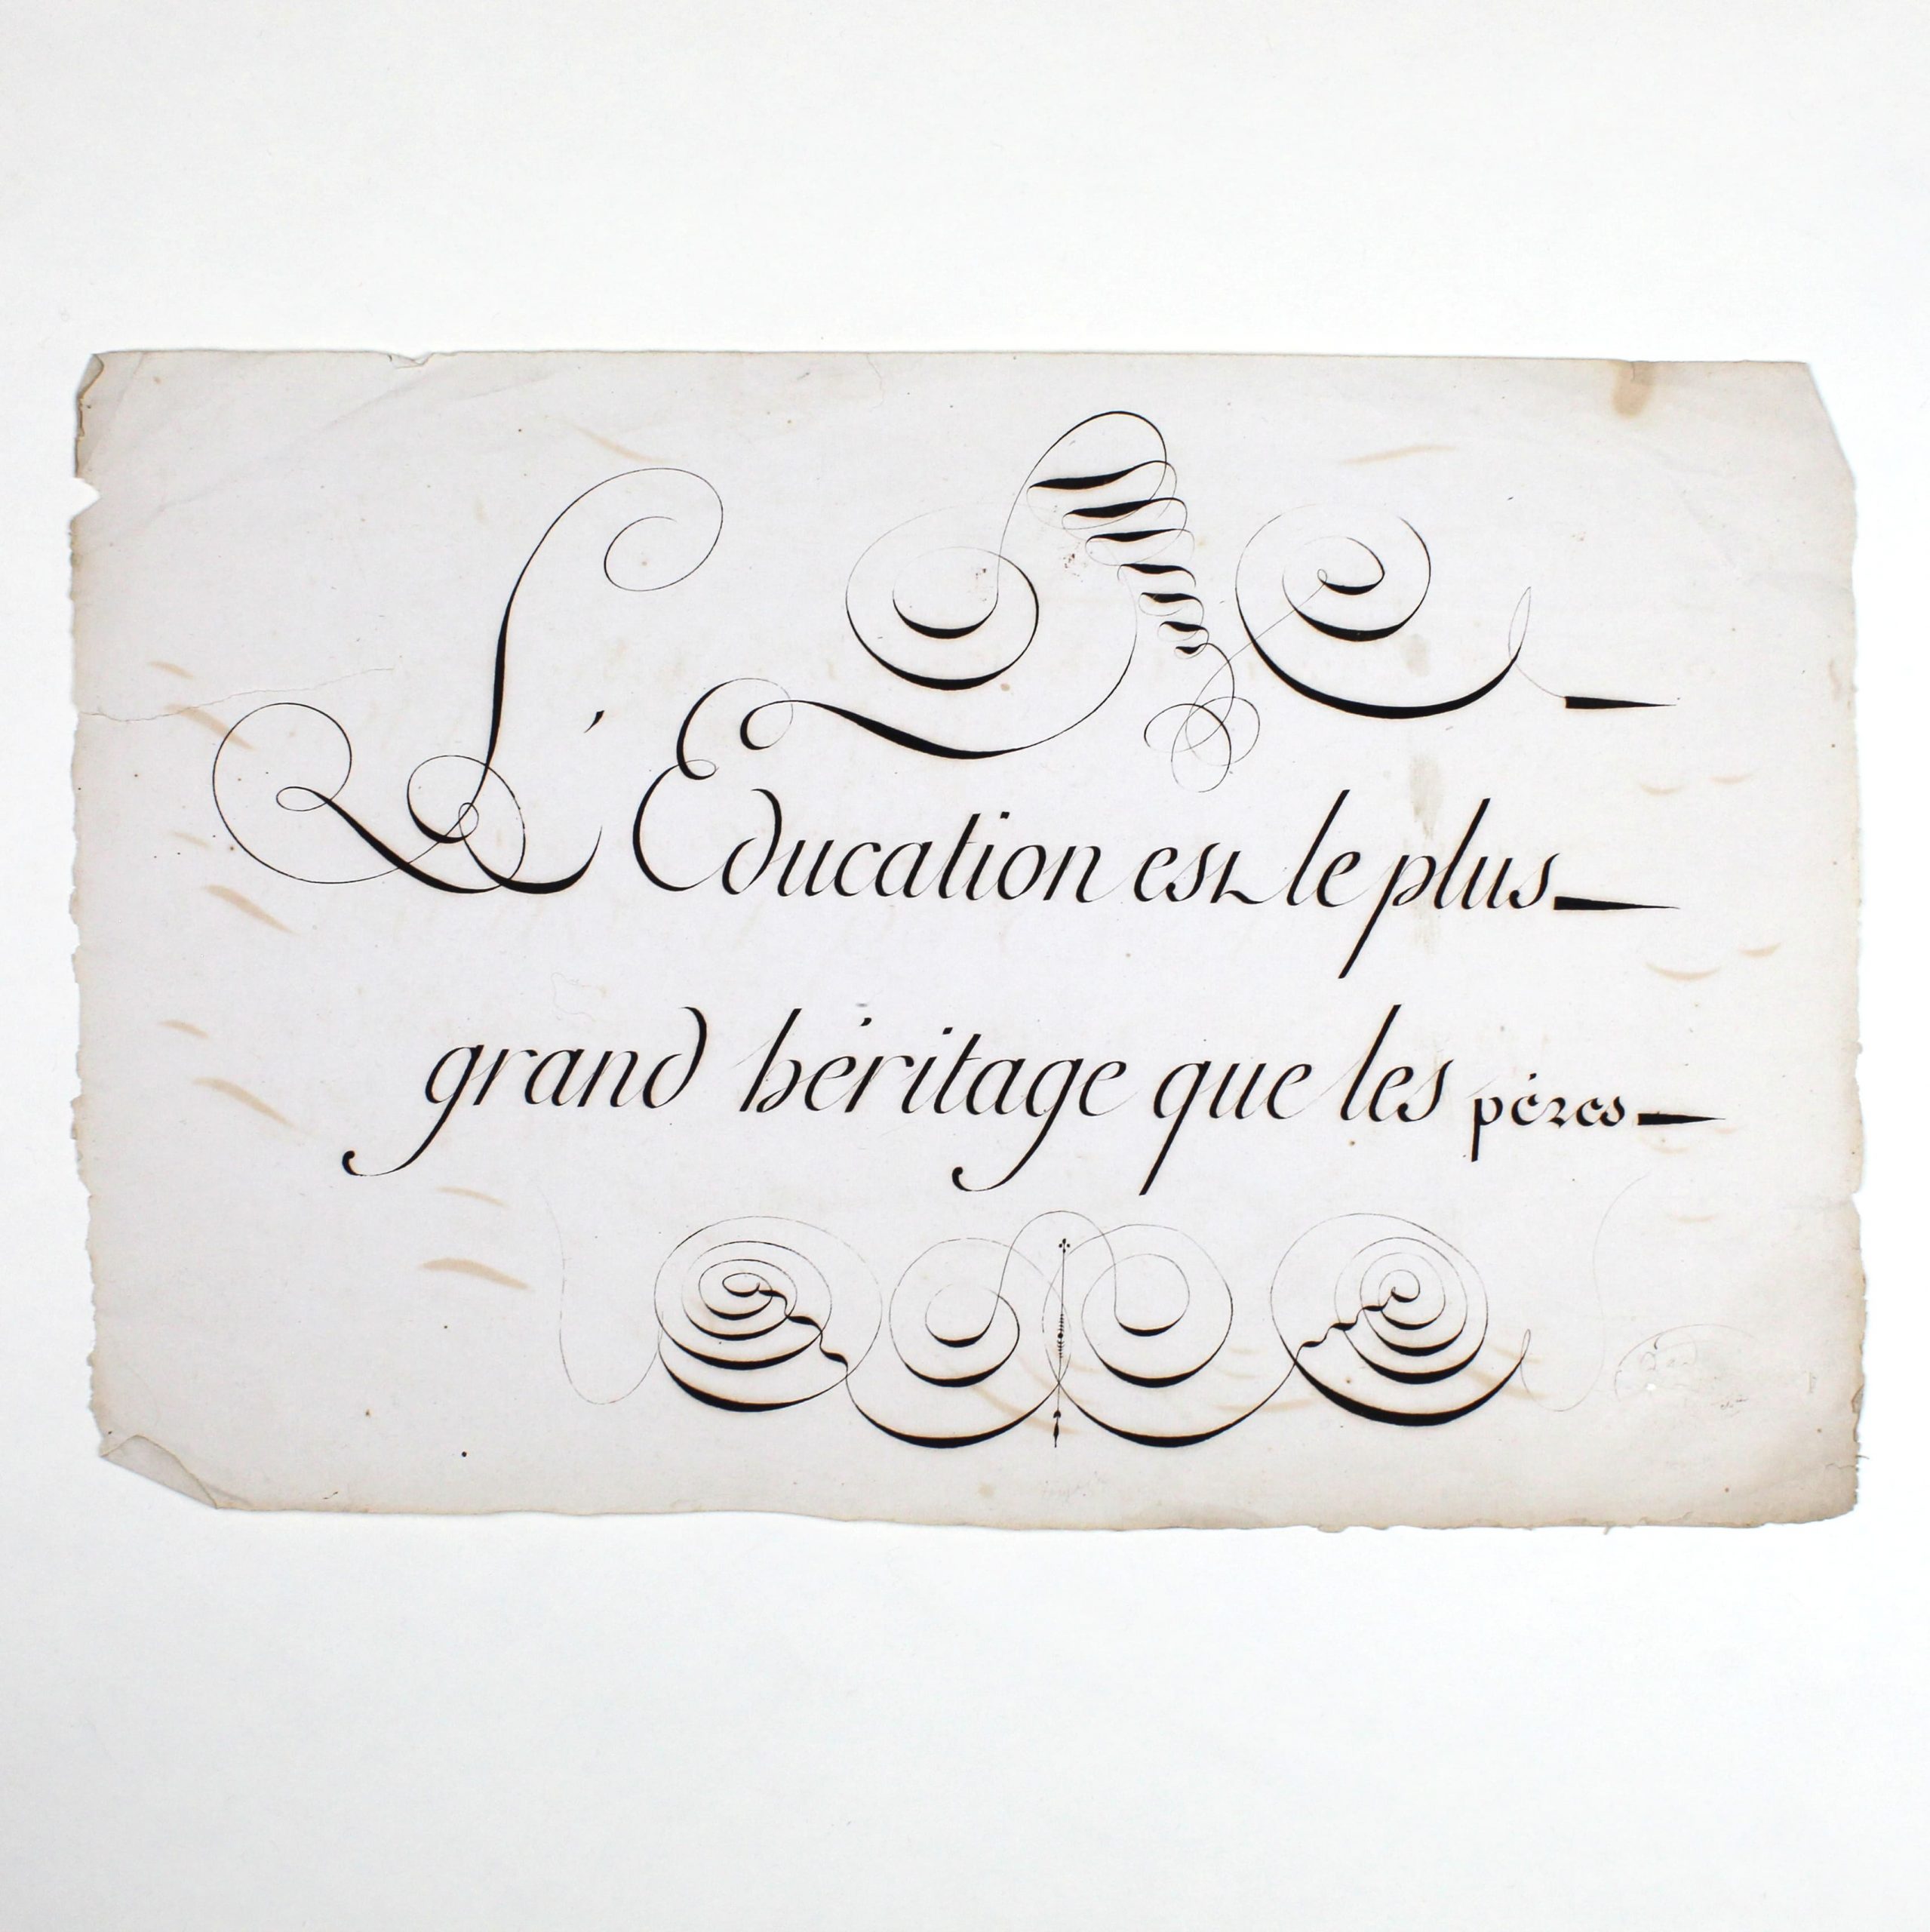 L'Education est le plus
grand héritage que les péres